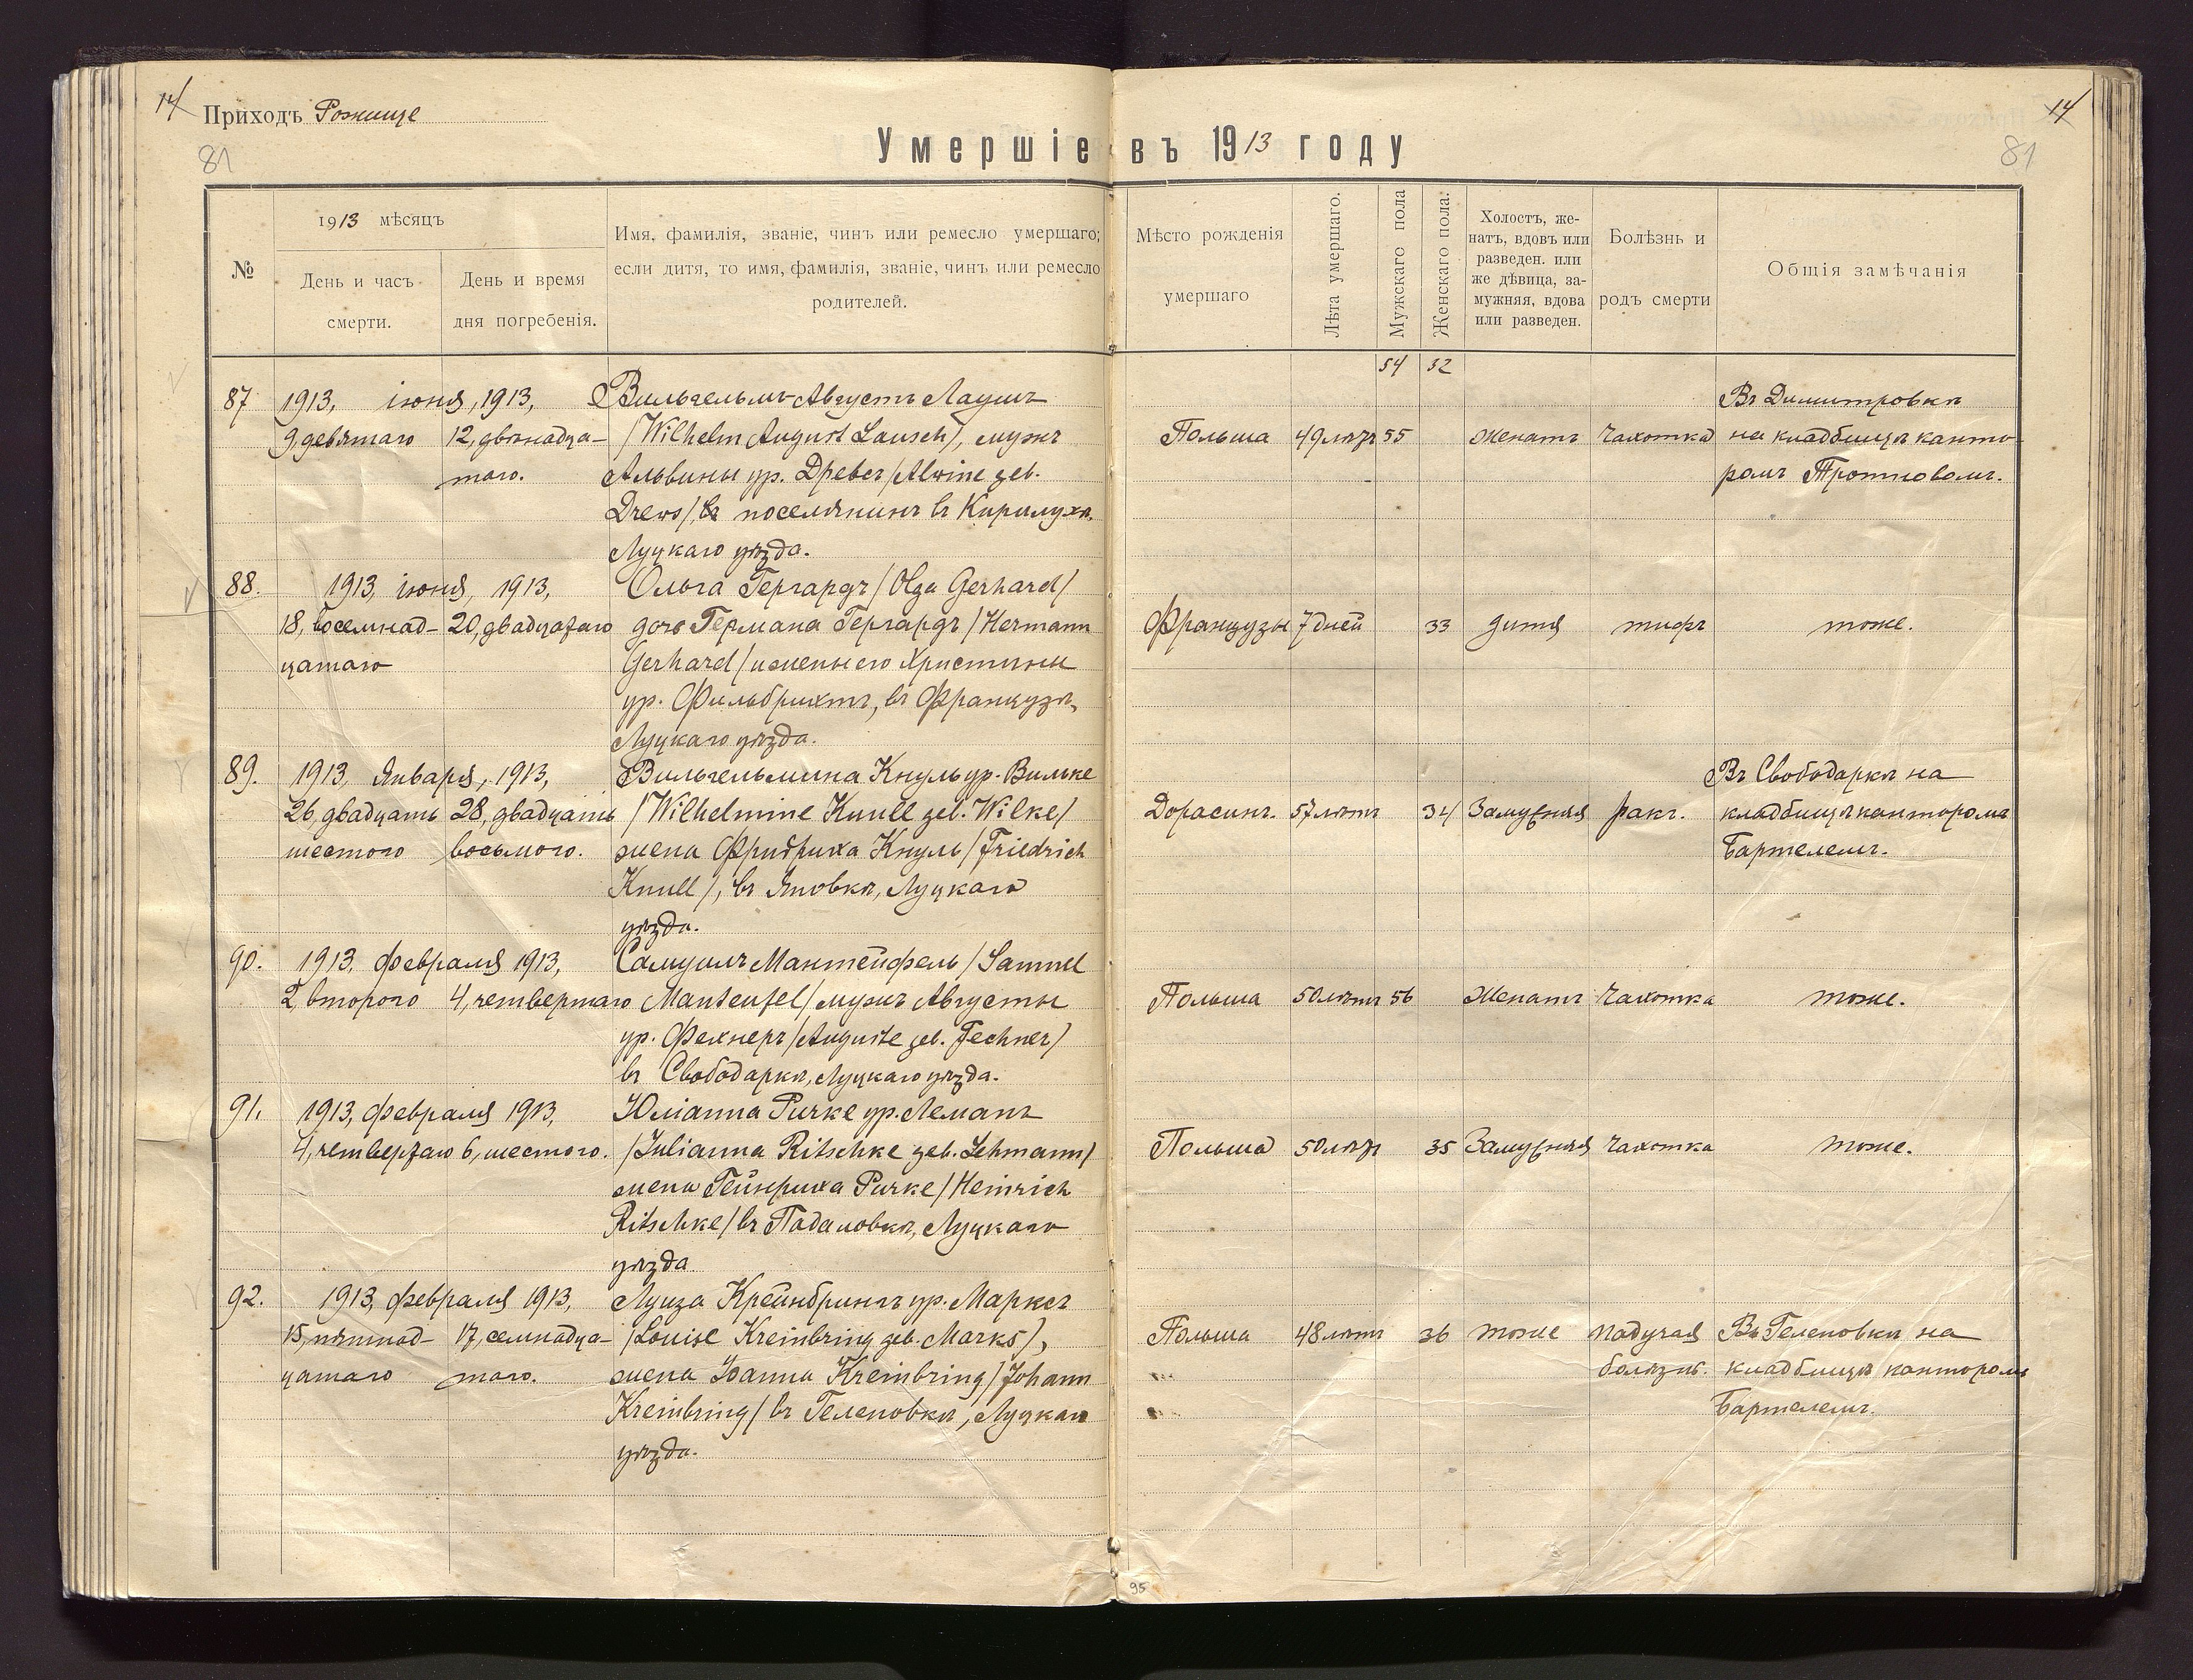 14
Приходъ Рожище
81
Умершіе въ 1913 году
14
81
№
1913 мѣсяцъ
День и часъ смерти.
День и время дня погребенія.
Имя, фамилія, званіе, чинъ или ремесло умершаго;
если дитя, то имя, фамилія, званіе, чинъ или ремесло
родителей.
Мѣсто рожденія
умершаго
Лѣта умершаго.
Мужскаго пола
Женскаго пола.
Холостъ, же-
натъ, вдовъ или
разведен. или
же дѣвица, за-
мужняя, вдова
или разведен.
Болѣзнь и
родъ смерти
Общія замѣчанія
54 32
87 1913, іюня, 1913, Вильгельмъ-Августъ Лаушъ Въ Димитровкѣ
9, девятаго 12, двѣнадца- /Wilhelm August Lausch/, мужъ Польша 49 лѣтъ 55 Женатъ Чахотка на кладбищѣ канто-
таго. Альвины ур. Древсъ /Alwine geb. ромъ Тротновомъ.
Drews/, поселянинъ въ Кирилухѣ,
Луцкаго уѣзда.
88. 1913, іюня, 1913, Ольга Гергардъ /Olga Gerhard/
18, восемнад- 20, двадцатаго дочь Германа Гергардъ /Hermann Французы 7 дней 33 дитя тифъ тоже.
цатаго Gerhard/ и жены его Христины
ур. Фильбрихтъ, въ Французѣ,
Луцкаго уѣзда.
89. 1913, Января, 1913, Вильгельмина Кнуль ур. Вильке Въ Свободаркѣ на
26, двадцать 28, двадцать /Wilhelmine Knull geb. Wilke/ Дорасинъ. 57 лѣтъ 34 Замужняя ракъ. кладбищѣ канторомъ
шестого восьмого. жена Фридриха Кнуль /Friedrich Бартелемъ.
Knull/, въ Яновкѣ, Луцкаго
уѣзда.
90. 1913, февраля 1913, Самуилъ Мантейфель /Samuel
2, второго 4, четвертаго Manteufel/, мужъ Августы Польша 50 лѣтъ 56 Женатъ Чахотка тоже.
ур. Фехнеръ /Auguste geb. Fechner/
въ Свободаркѣ, Луцкаго уѣзда.
91. 1913, февраля 1913, Юліанна Ричке ур. Леманъ
4, четвертаго 6, шестого. /Julianna Ritschke geb. Lehmann/ Польша 50 лѣтъ 35 Замужняя Чахотка тоже.
жена Гейнриха Ричке /Heinrich
Ritschke/ въ Подаловкѣ, Луцкаго
уѣзда
92. 1913, февраля 1913, Луиза Крейнбрингъ ур. Марксъ
15, пятнад- 17, семнадца- /Louise Kreinbring geb. Marks/, Польша 48 лѣтъ 36 тоже падучая Въ Геленовкѣ на
цатаго таго. жена Іоанна Kreinbring /Johann болѣзнь. кладбищѣ канторомъ
Kreinbring/ въ Геленовкѣ, Луцкаго Бартелемъ.
уѣзда.
95